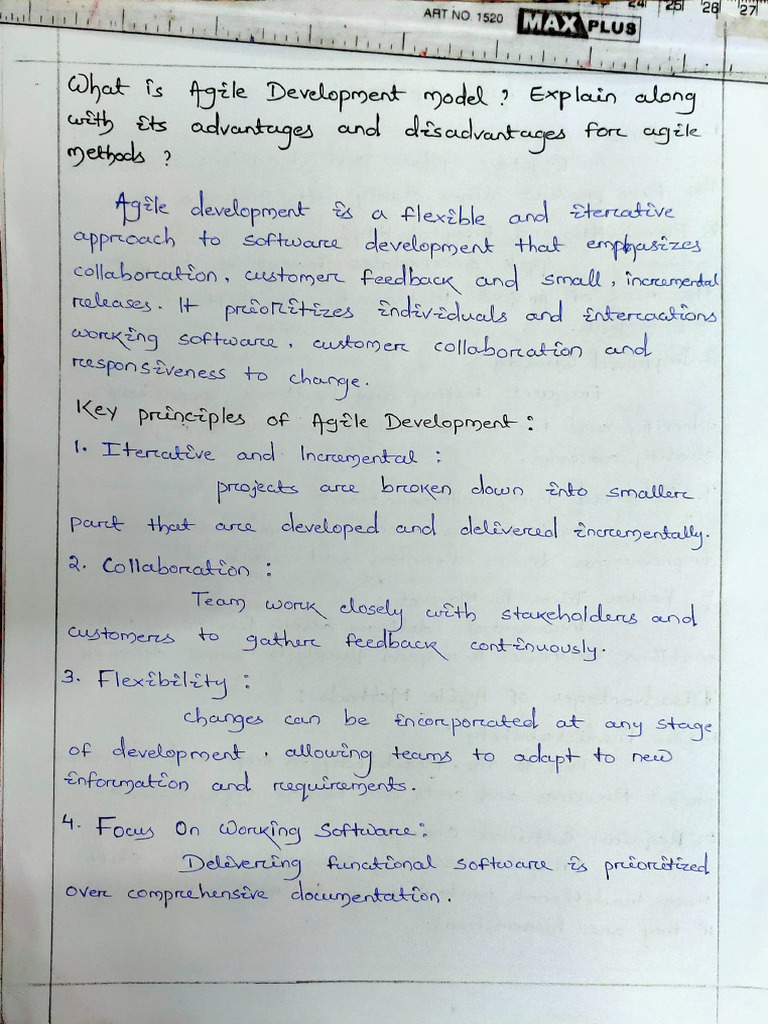 24 25 26 27
ART NO. 1520 MAX PLUS
What is Agile Development model ? Explain along
with its advantages and disadvantages for agile
methods ?
Agile development is a flexible and iterative
approach to software development that emphasizes
collaboration, customer feedback and small, incremental
releases. It prioritizes individuals and interactions
working software, customer collaboration and
responsiveness to change.
Key principles of Agile Development :
1. Iterative and Incremental :
projects are broken down into smaller
part that are developed and delivered incrementally.
2. Collaboration :
Team work closely with stakeholders and
customers to gather feedback continuously.
3. Flexibility :
changes can be incorporated at any stage
of development, allowing teams to adapt to new
information and requirements.
4. Focus On Working Software :
Delivering functional software is prioritized
over comprehensive documentation.